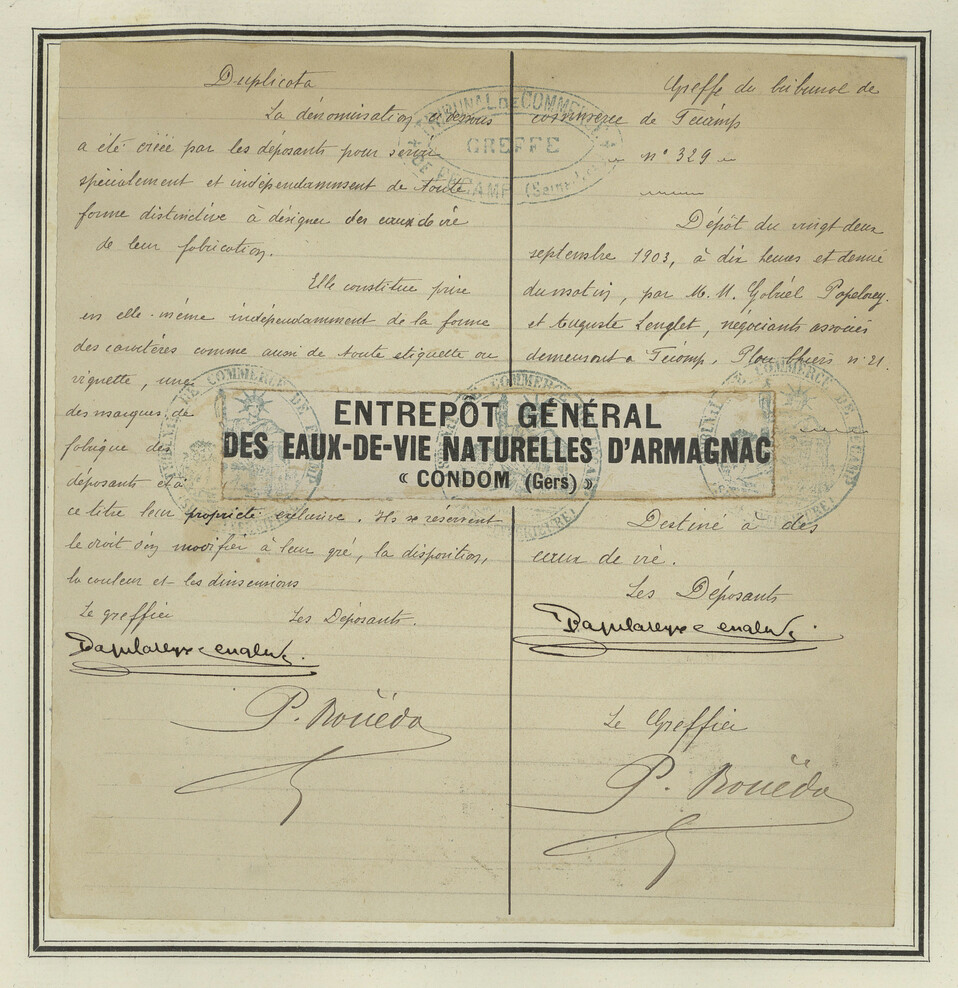 Duplicata
La dénomination ci-dessus
a été créée par les déposants pour servir
spécialement et indépendamment de toute
forme distinctive à désigner des eaux de vie
de leur fabrication.
Elle constitue prise
en elle-même indépendamment de la forme
des caractères comme aussi de toute etiquette ou
vignette, une
des marques de
fabrique des
déposants et à
ce titre leur propriété exclusive. Ils se réservent
le droit d'en modifier à leur gré, la disposition,
la couleur et les dimensions
Le greffier Les Déposants.
P. Rouëda
TRIBUNAL DE COMMERCE
GREFFE
DE FÉCAMP
ENTREPÔT GÉNÉRAL
DES EAUX-DE-VIE NATURELLES D'ARMAGNAC
« CONDOM (Gers) »
Greffe du tribunal de
commerce de Fécamp
n° 329
Dépôt du vingt deux
septembre 1903, à dix heures et demie
du matin, par M. M. Gabriel Papelorey
et Auguste Lenglet, négociants associés
demeurant à Fécamp, n° 21.
Destiné à des
eaux de vie.
Les Déposants
Le Greffier
P. Rouëda